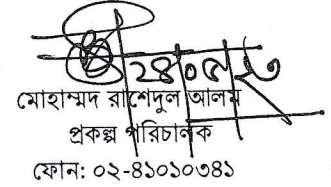 ২৪০৫২৩
মোহাম্মদ রাশেদুল আলম
প্রকল্প পরিচালক
ফোন: ০২-৪১০১০৩৪১